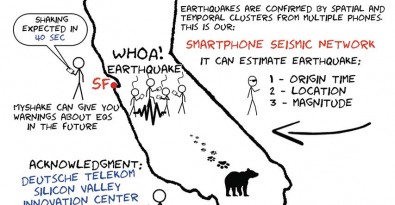 SHAKING
EXPECTED IN
40 SEC
WHOA!
EARTHQUAKE
SF
MYSHAKE CAN GIVE YOU
WARNINGS ABOUT EQS
IN THE FUTURE
EARTHQUAKES ARE CONFIRMED BY SPATIAL AND
TEMPORAL CLUSTERS FROM MULTIPLE PHONES.
THIS IS OUR:
SMARTPHONE SEISMIC NETWORK
IT CAN ESTIMATE EARTHQUAKE:
1 - ORIGIN TIME
2 - LOCATION
3 - MAGNITUDE
ACKNOWLEDGMENT:
DEUTSCHE TELEKOM
SILICON VALLEY
INNOVATION CENTER